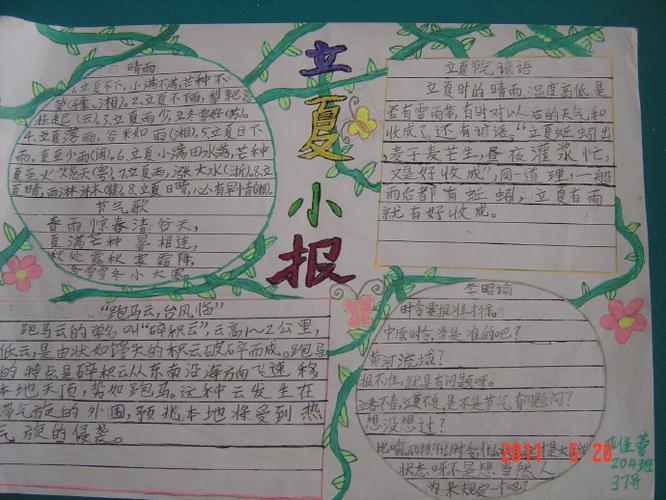 立夏小报
晴雨
1.立夏不下,小满不满,芒种不
管(豫、湘)。2.立夏不下雨,犁耙高
挂起(云)。3.立夏雨少,立冬雪好(苏)。
4.立夏落雨,谷米如雨(湘)。5.立夏日下
雨,夏至少雨(闽)。6.立夏小满田水满,芒种
夏至火烧天(黔)。7.立夏雨,涨大水(浙)。8.立
夏晴,雨淋淋(赣)。8.立夏日晴,必有旱情
节气歌
春雨惊春清谷天,
夏满芒种暑相连,
秋处露秋寒霜降,
冬雪雪冬小大寒。
立夏节气谚语
立夏时的晴雨、温度高低、是
否有雷雨等,有时对以后的天气和
收成了,还有谚语,“立夏蚯蚓出
,麦子麦芒生,昼夜灌浆忙,
又是好收成”,同一道理,一般
雨后都有蚯蚓,立夏有雨
就有好收成。
“跑马云,台风临”
跑马云的学名叫“碎积云”,云高1～2公里,
低云,是由状如馒头的积云破碎而成。跑马
的特点是碎积云从东南沿海方向飞速移
本地天顶,势如跑马。这种云发生在
带气旋的外围,预兆本地将受到热
气旋的侵袭。
李明瑜
时令要报准才行。
中原时令,当是准的吧?
黄河流域?
报不准,就是有问题呀。
立春不春,立夏不夏,是不是节气有问题问?
想没想过?
状态呀不是想当然人
为来规定一个吧?
2011 5 20
佳蕾
204班
37号